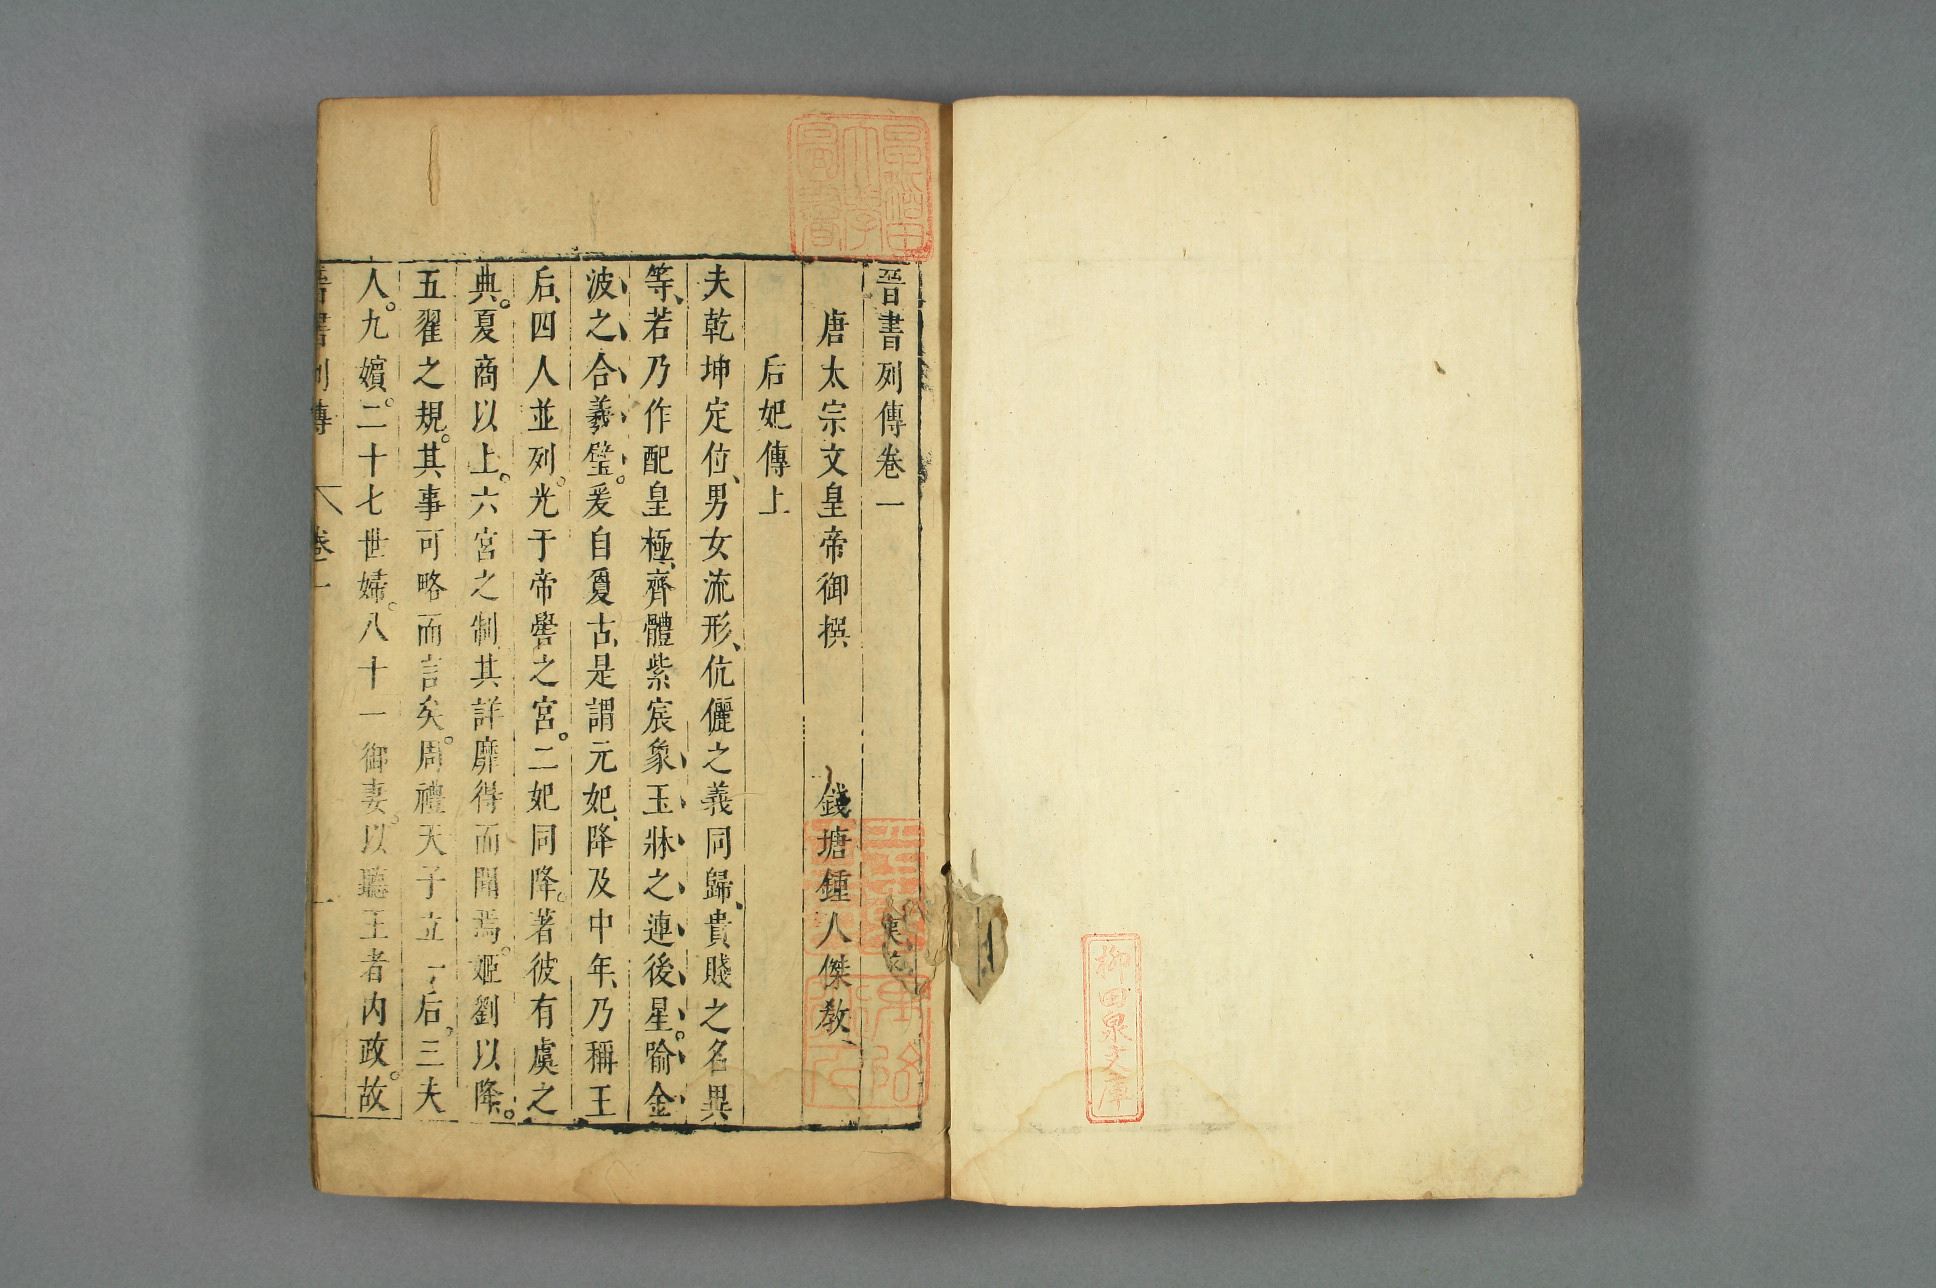 柳田泉文庫
早稲田大學圖書
晉書列傳卷一
唐太宗文皇帝御撰 錢塘鍾人傑敎
后妃傳上
夫乾坤定位、男女流形、伉儷之義同歸、貴賤之名異
等、若乃作配皇極、齊體紫宸象玉牀之連後星。喻金
波之合羲璧。爰自夐古、是謂元妃、降及中年、乃稱王
后、四人並列。光于帝嚳之宮。二妃同降。著彼有虞之
典。夏商以上。六宮之制其詳靡得而聞焉。姬劉以降。
五翟之規。其事可略而言矣。周禮天子立一后。三夫
人。九嬪。二十七世婦。八十一御妻。以聽王者內政。故
晉書列傳 卷一 一